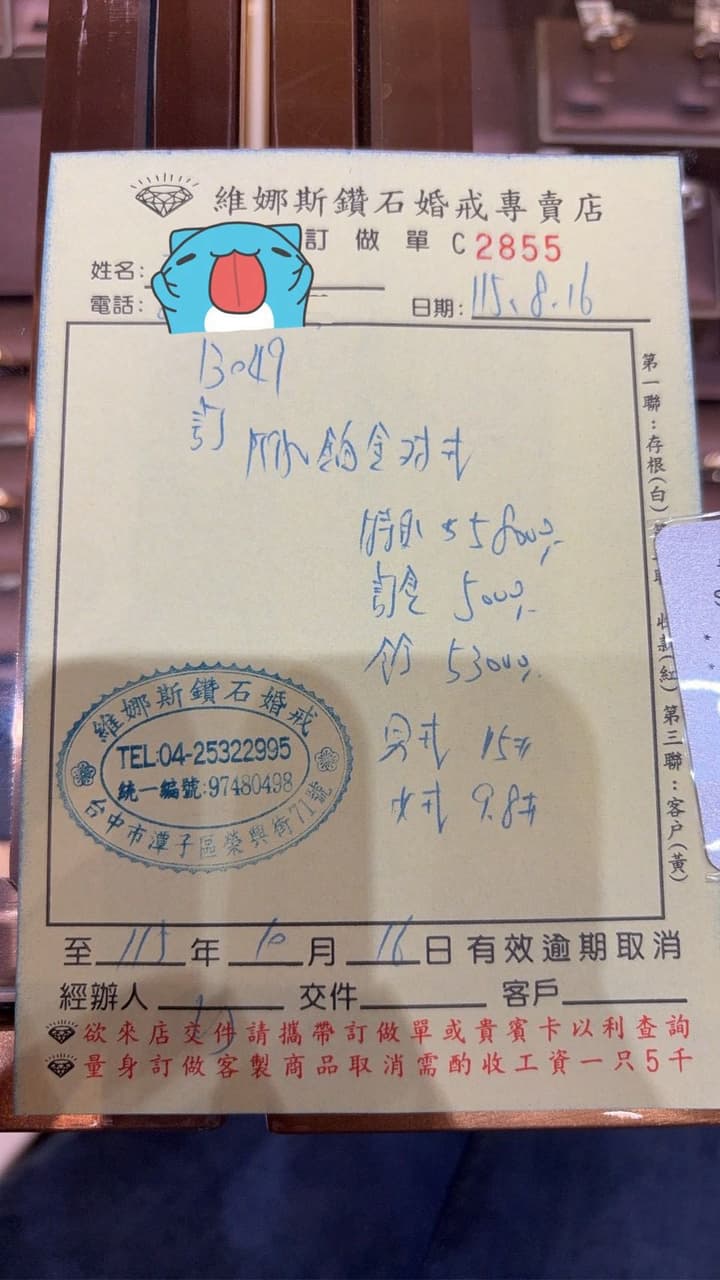 維娜斯鑽石婚戒專賣店
訂做單 C 2855
姓名:
電話:
日期: 115.8.16
13049
訂 鉑金對戒
$58000,-
訂金 5000,-
餘 53000,-
男戒 15#
女戒 9.8#
維娜斯鑽石婚戒
TEL:04-25322995
統一編號:97480498
台中市潭子區榮興街71號
至115年10月16日有效逾期取消
經辦人 交件 客戶
欲來店交件請攜帶訂做單或貴賓卡以利查詢
量身訂做客製商品取消需酌收工資一只5千
第一聯:存根(白)
(紅) 第三聯:客戶(黃)